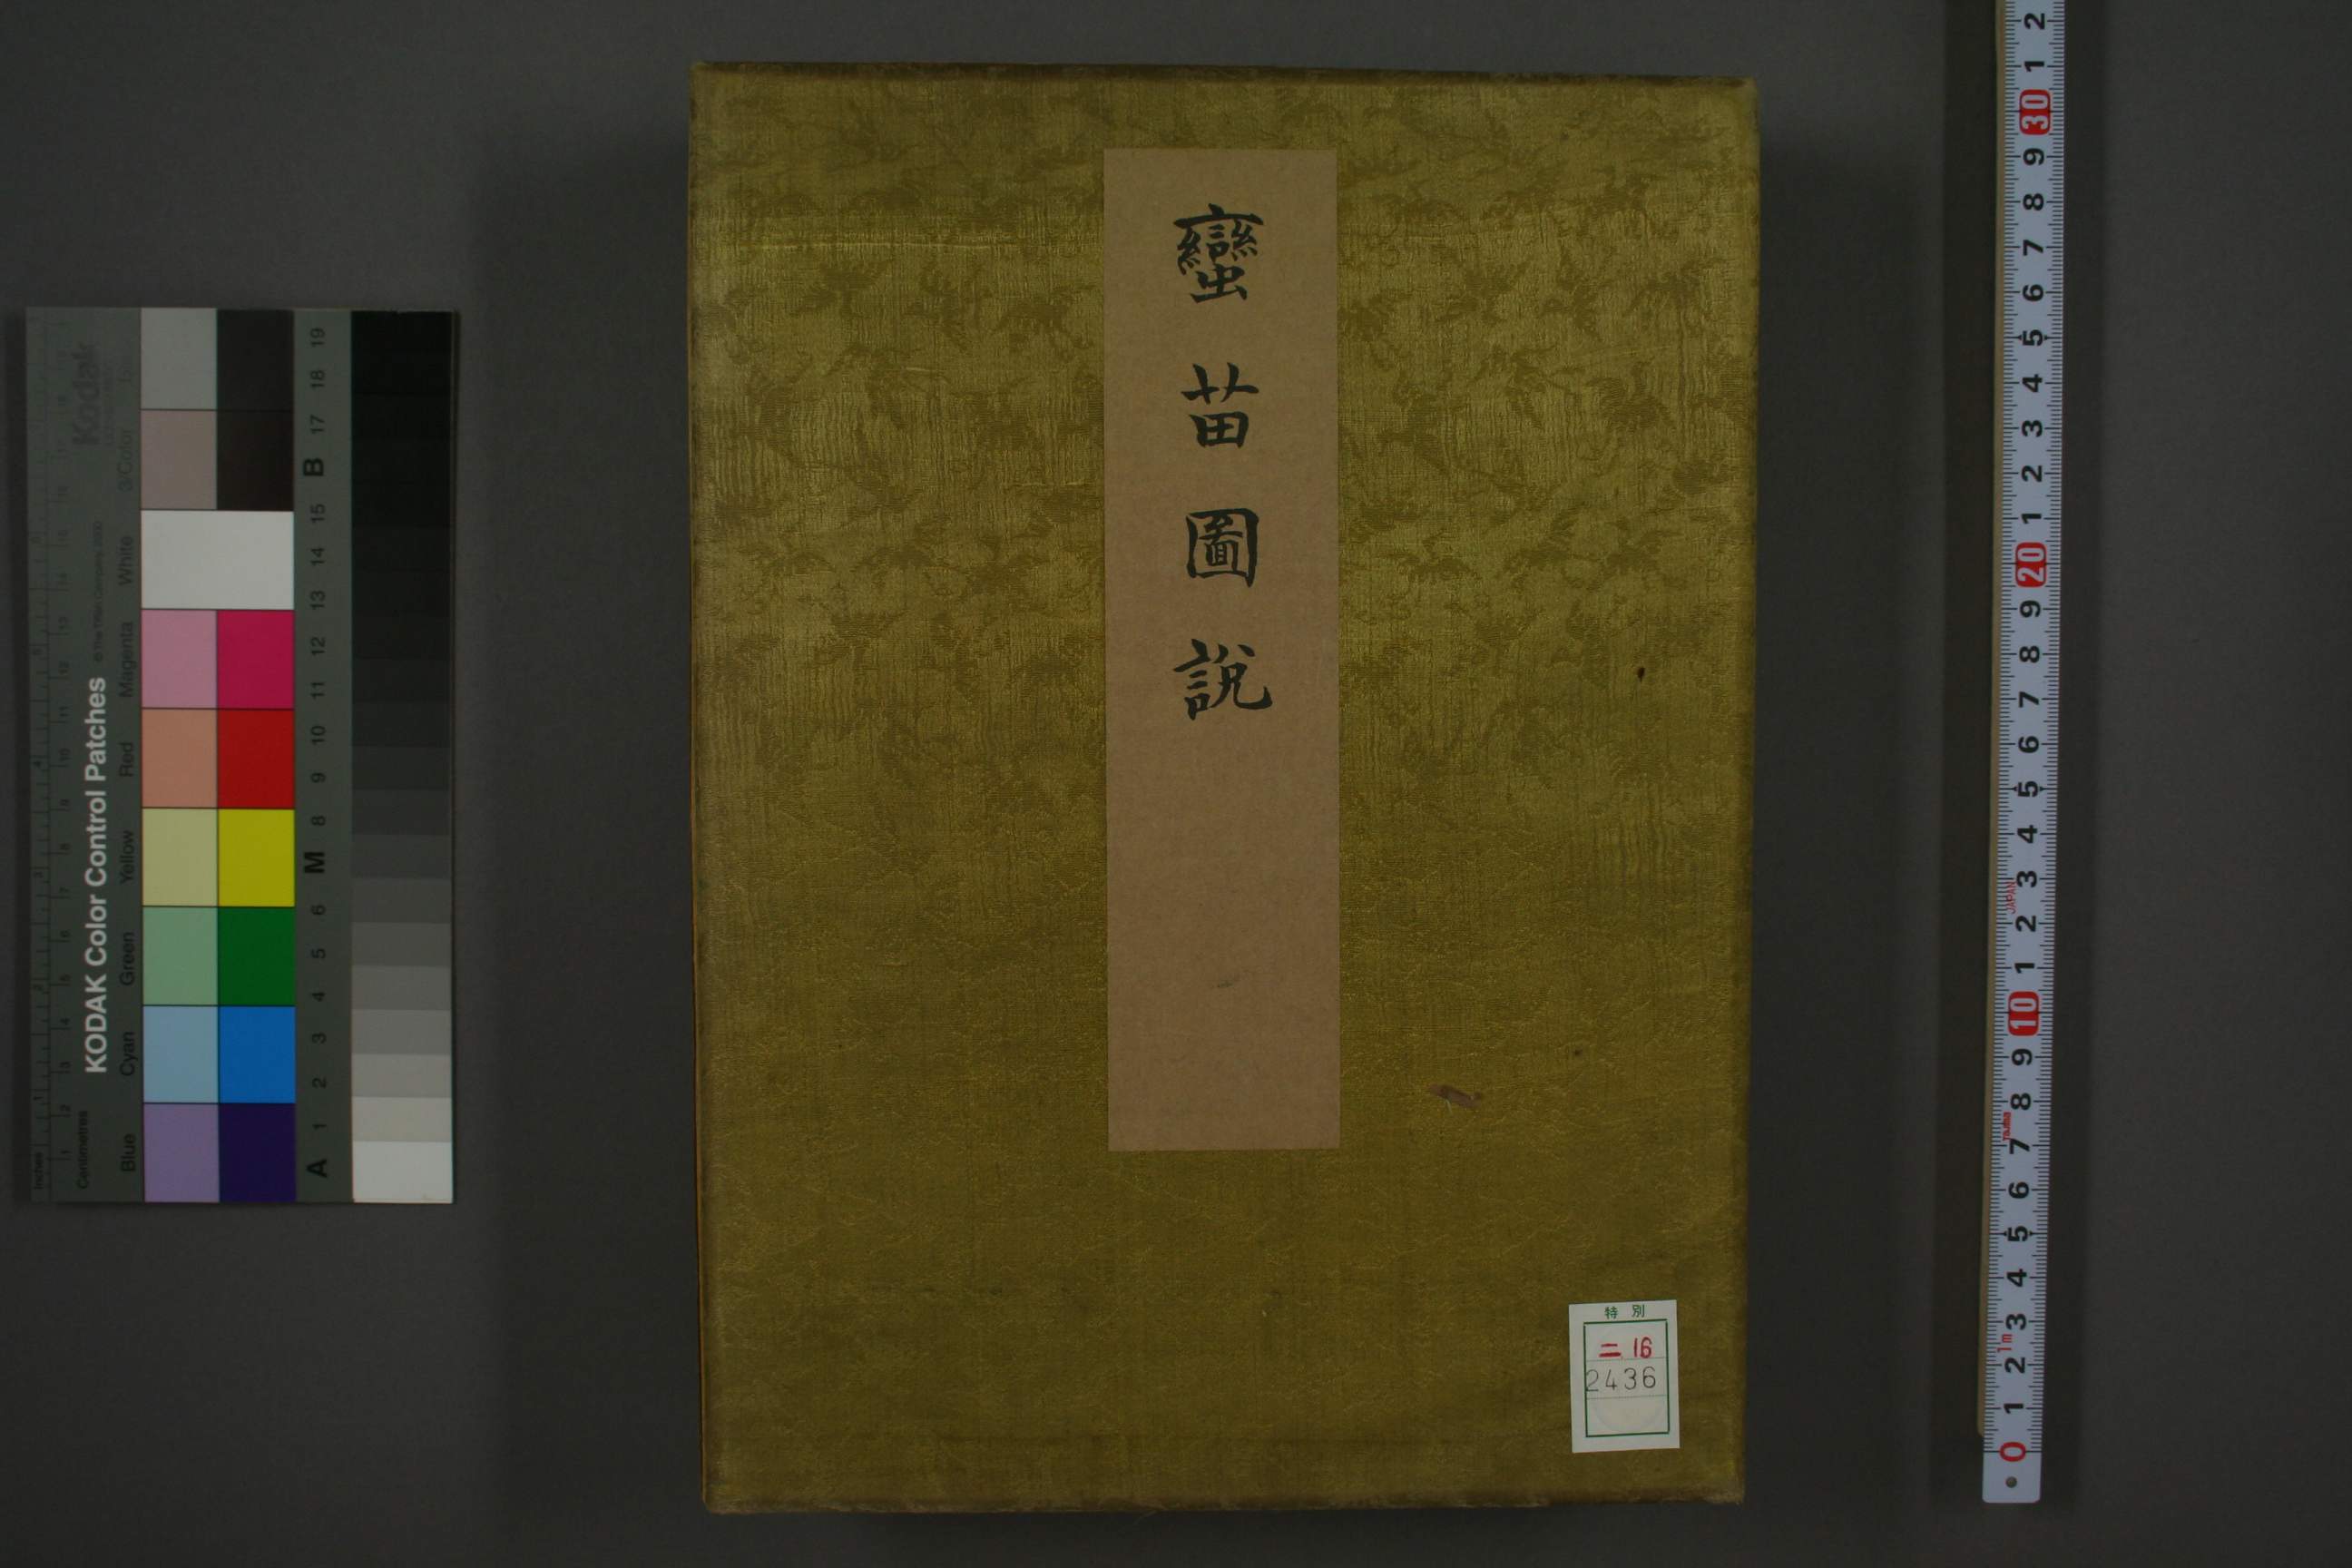 蠻苗圖說
特別
二 16
2436
KODAK Color Control Patches
© The Tiffen Company, 2000
Kodak
Inches
Centimetres
Blue
Cyan
Green
Yellow
Red
Magenta
White
3/Color
A 1 2 3 4 5 6 M 8 9 10 11 12 13 14 15 B 17 18 19
0 1 2 3 4 5 6 7 8 9 10 1 2 3 4 5 6 7 8 9 20 1 2 3 4 5 6 7 8 9 30 1 2
1m
Tajima
JAPAN